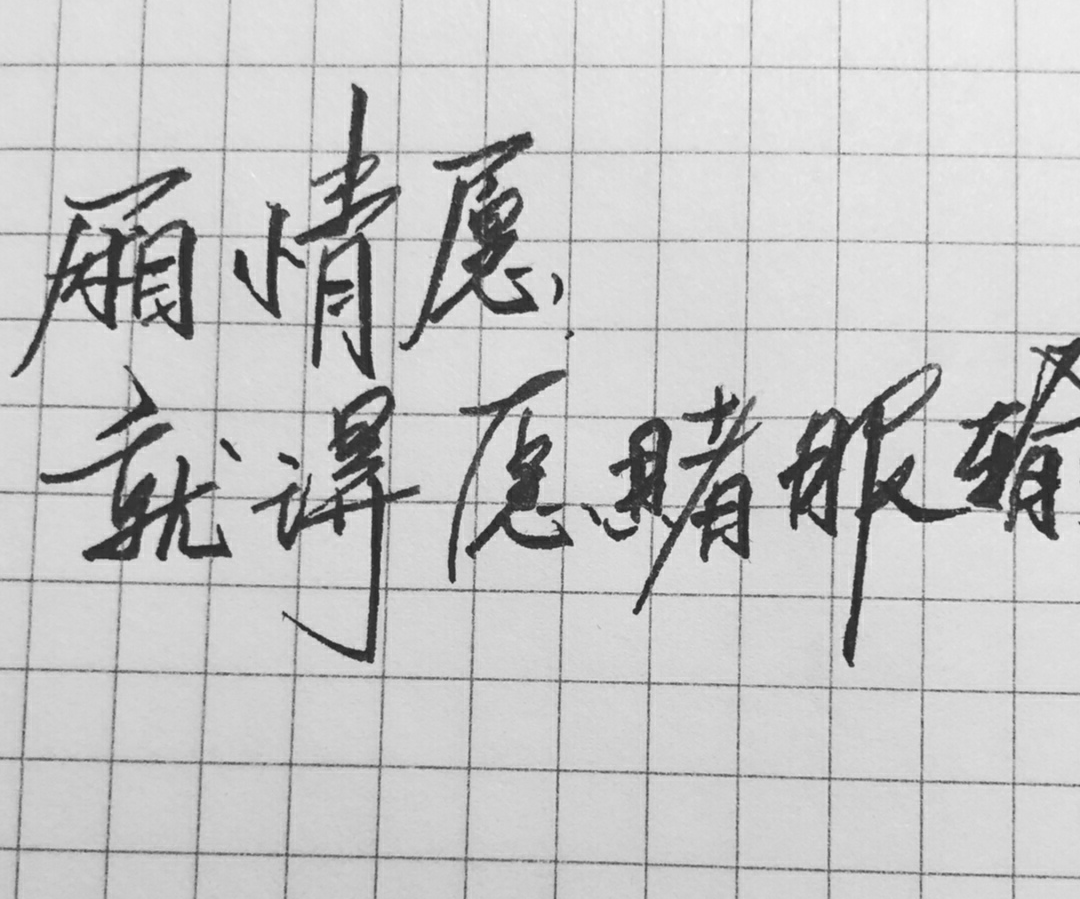 厢情愿
就得愿赌服输